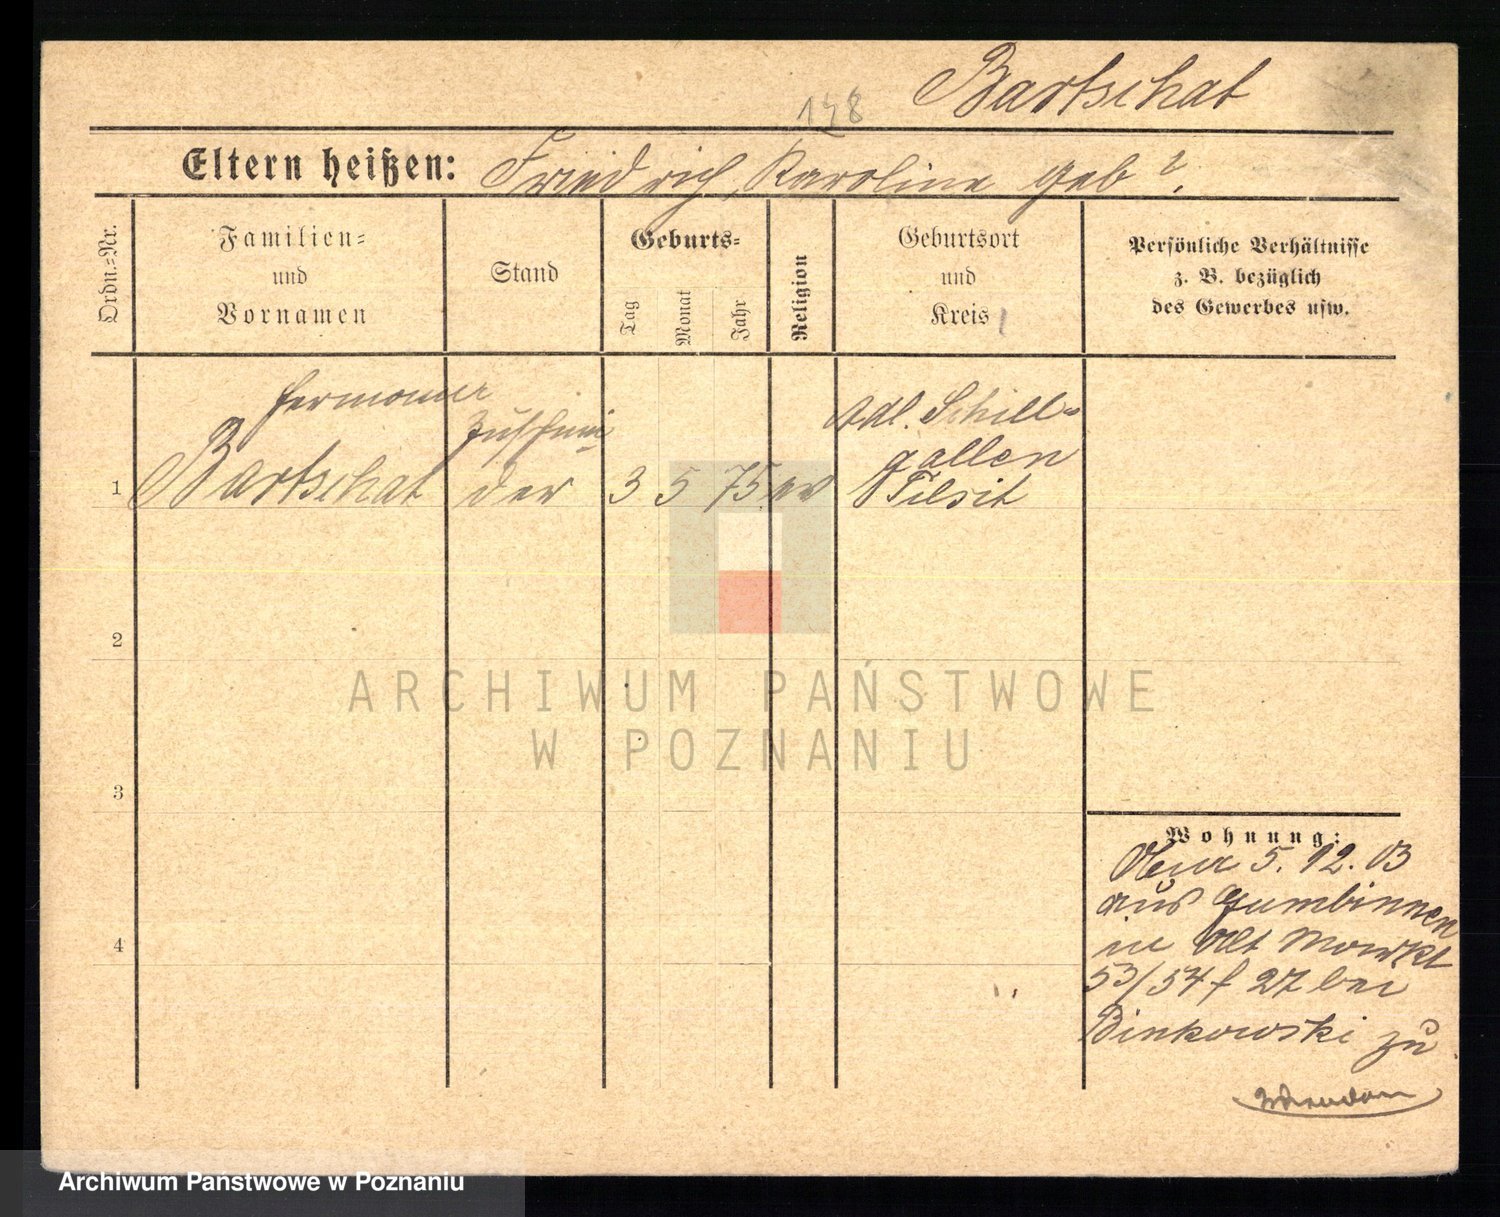 Bartschat
Eltern heißen: Friedrich, Karoline geb ?.
Ordn.-Nr.
Familien-
und
Vornamen
Stand
Geburts-
Tag
Monat
Jahr
Religion
Geburtsort
und
Kreis
Persönliche Verhältnisse
z. B. bezüglich
des Gewerbes usw.
Hermann
Zuschnei
Adl. Schill-
gallen
1 Bartschat der 3 5 75 ev Tilsit
2
3
4
Wohnung:
5. 12. 03
aus Gumbinnen
in Alt Markt
53/54 f 27 bei
Binkowski zu
ARCHIWUM PAŃSTWOWE
W POZNANIU
Archiwum Państwowe w Poznaniu